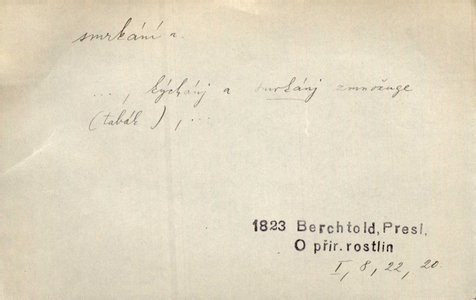 smrkání n.
..., kýchánj a smrkánj zmnožuge
(tabák), ...
1823 Berchtold, Presl,
O přir. rostlin
I, 8, 22, 20